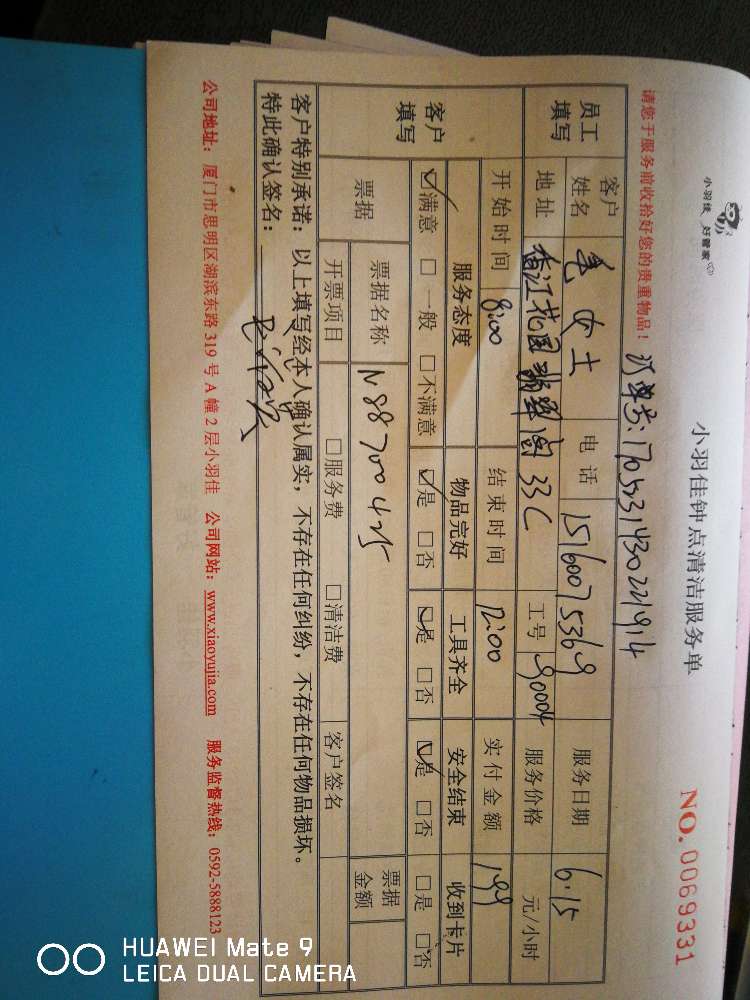 小羽佳 好管家
小羽佳钟点清洁服务单
NO. 0069331
请您于服务前收拾好您的贵重物品!
员工填写 客户姓名 毛女士 电话 15160075369 服务日期 6.15
地址 香江花园 33C 工号 90004 服务价格 元/小时
开始时间 8:00 结束时间 12:00 实付金额 199
客户填写 服务态度 物品完好 工具齐全 安全结束 收到卡片
☑满意 □一般 □不满意 ☑是 □否 ☑是 □否 ☑是 □否 □是 □否
票据 票据名称 N88700425 票据金额
开票项目 □服务费 □清洁费 客户签名
客户特别承诺:以上填写经本人确认属实,不存在任何纠纷,不存在任何物品损坏。
特此确认签名:
公司地址:厦门市思明区湖滨东路 319 号 A 幢 2 层小羽佳 公司网站:www.xiaoyujia.com 服务监督热线:0592-5888123
HUAWEI Mate 9
LEICA DUAL CAMERA